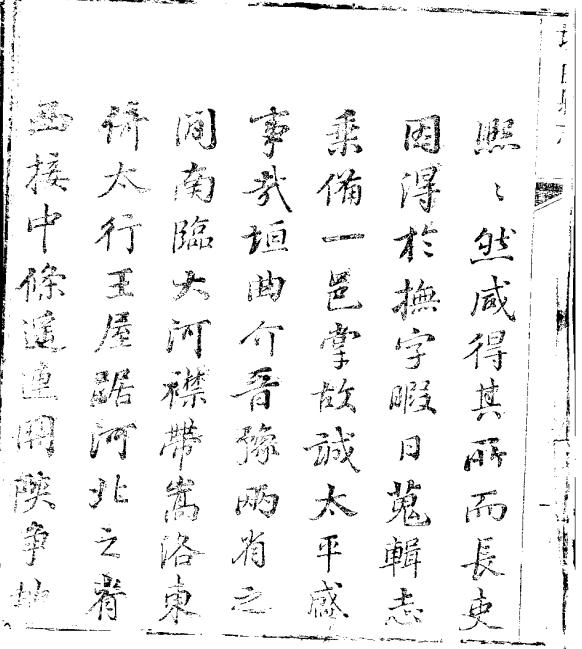 熈〻然咸得其所而長吏
因得於撫字暇日蒐輯志
乘備一邑掌故誠太平盛
事哉垣曲介晋豫兩省之
間南臨大河襟帶嵩洛東
倚太行王屋踞河北之脊
西接中條遥連関陝爭地